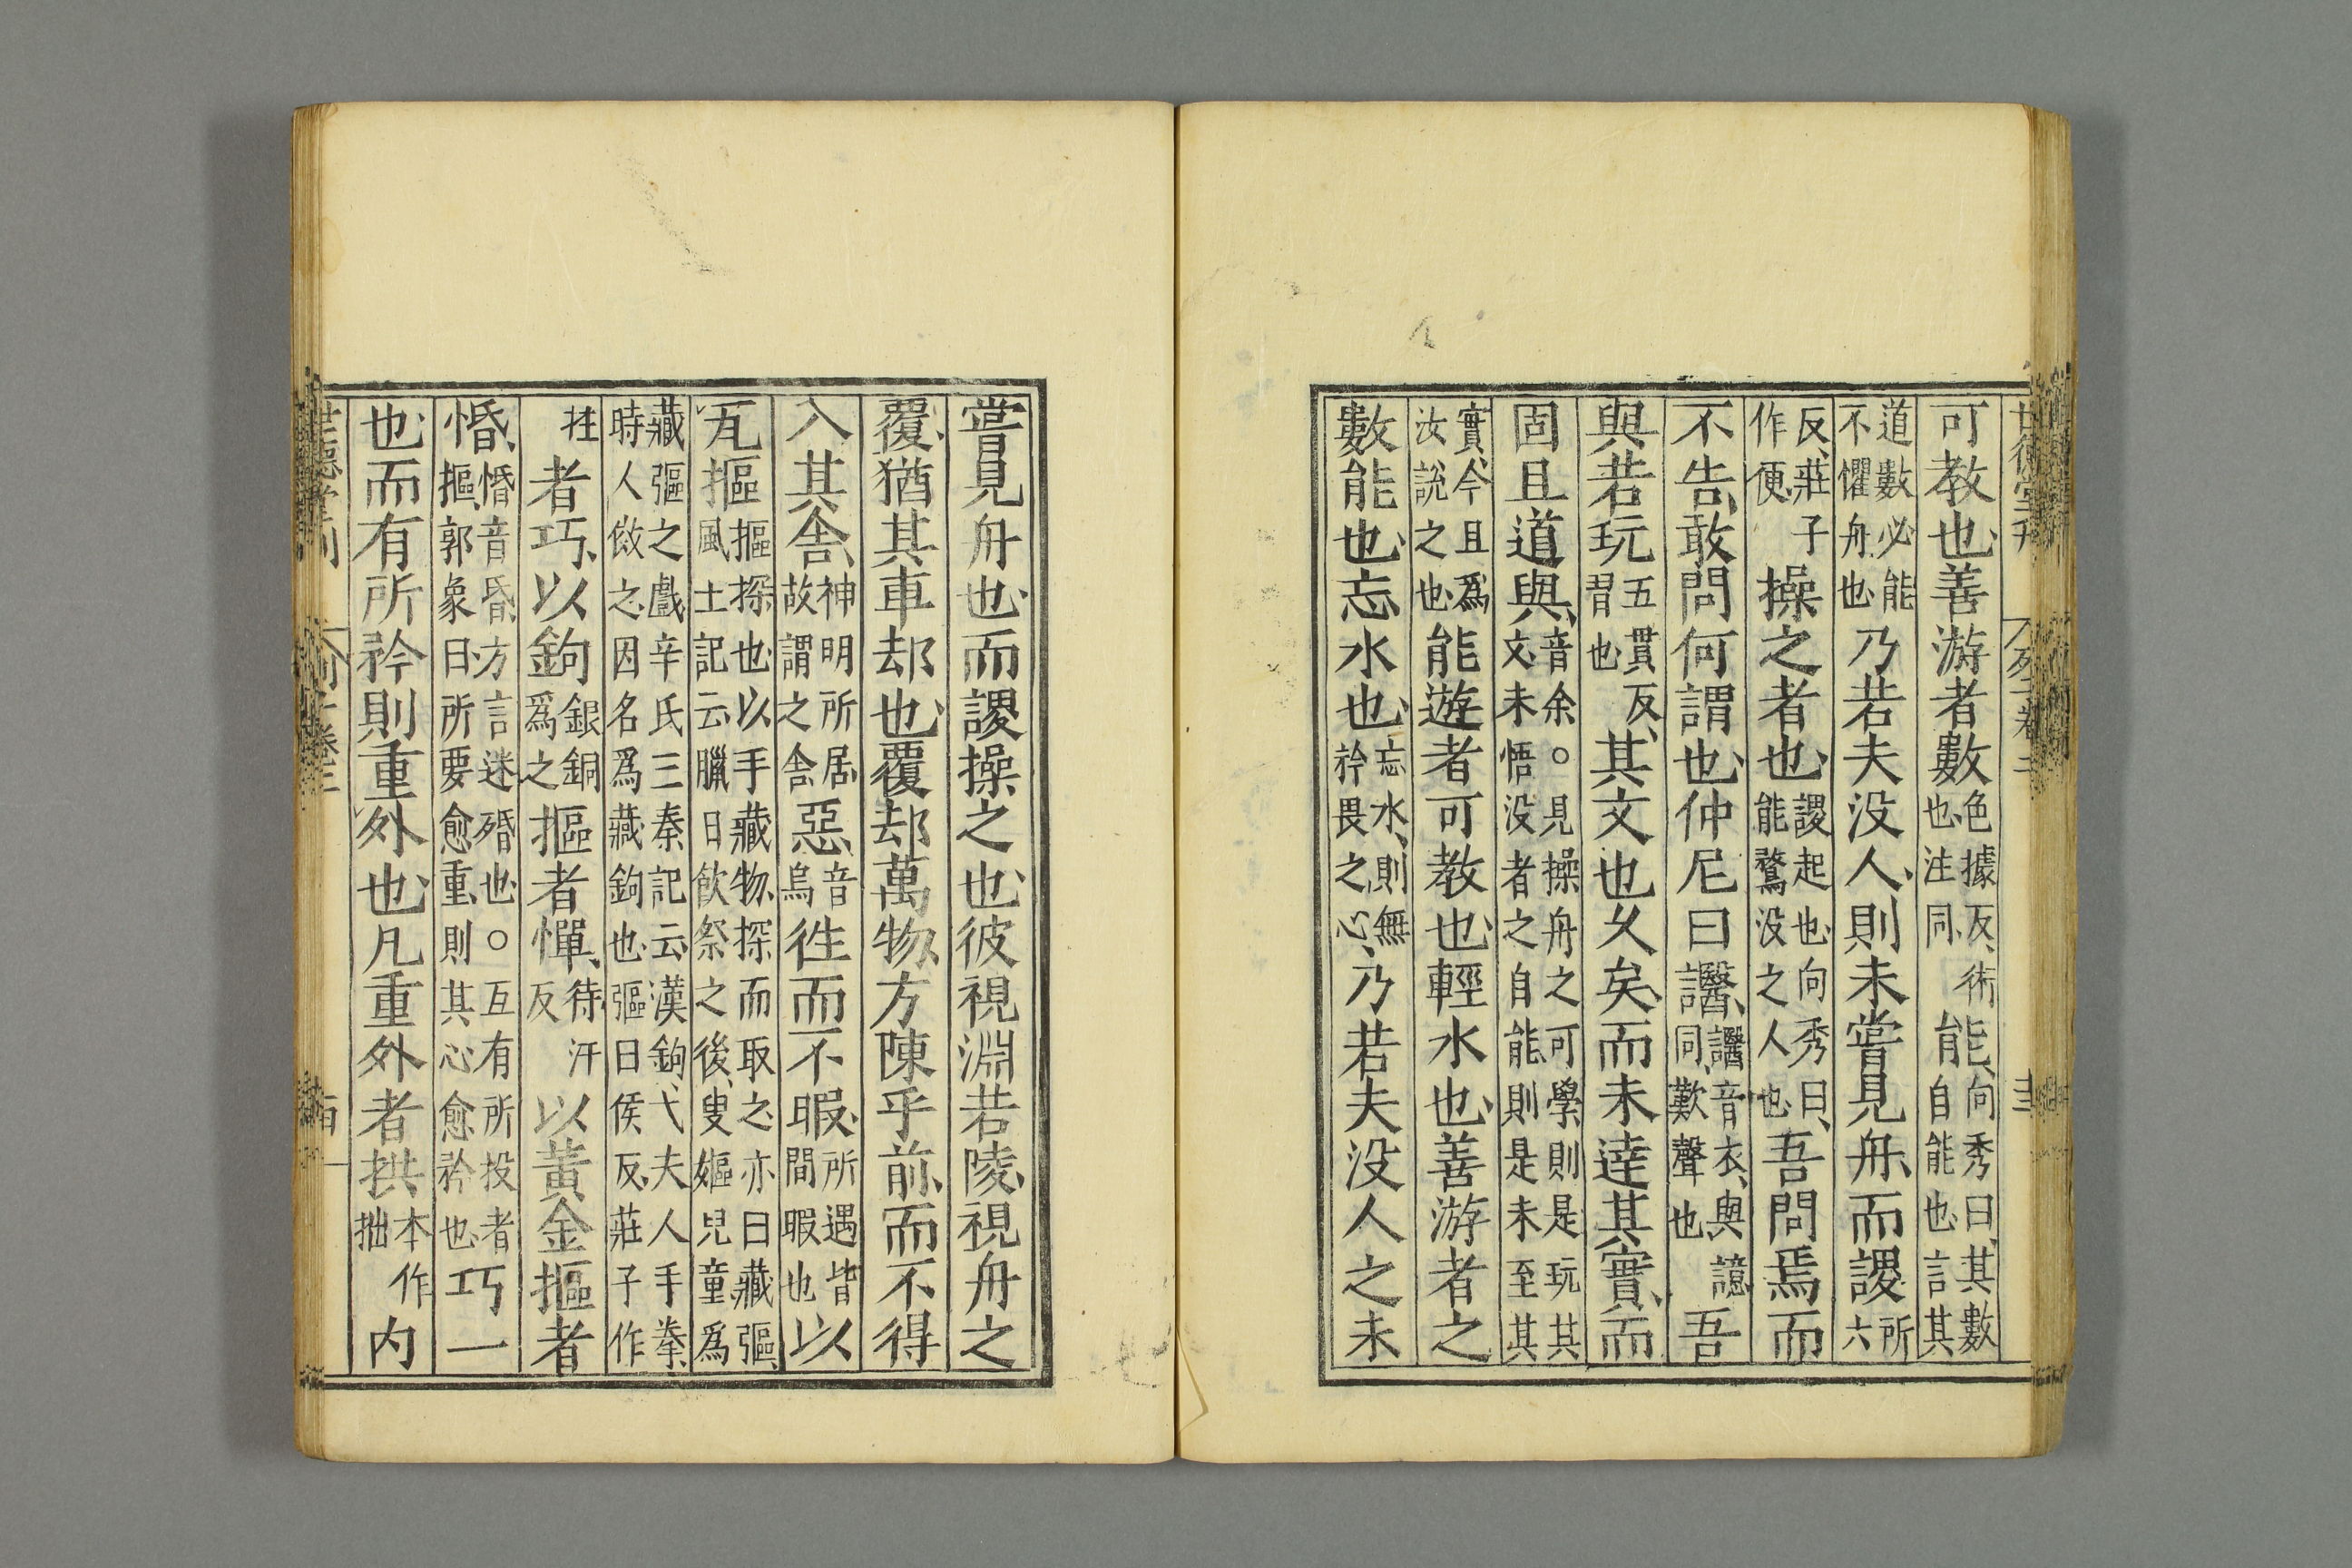 可教也善游者數色據反術也注同能向秀曰其數自能也言其
道數必能不懼舟也乃若夫没人則未嘗見舟而謖所六
反莊子作便操之者也謖起也向秀曰能鶩没之人也吾問焉而
不告敢問何謂也仲尼曰譩譩音衣與譩同歎聲也吾
與若玩五貫反習也其文也久矣而未達其實而
固且道與音余○見操舟之可學則是玩其文未悟没者之自能則是未至其
實今且爲汝說之也能遊者可教也輕水也善游者之
數能也忘水也忘水則無矜畏之心乃若夫没人之未
嘗見舟也而謖操之也彼視淵若陵視舟之
覆猶其車却也覆却萬物方陳乎前而不得
入其舍神明所居故謂之舍惡音烏徃而不暇所遇皆間暇也以
瓦摳摳探也以手藏物探而取之亦曰藏彄風土記云臘日飲祭之後叟嫗兒童爲
藏彄之戲辛氏三秦記云漢鉤弋夫人手拳時人傚之因名爲藏鉤也彄曰侯反莊子作
拄者巧以鉤銀銅爲之摳者憚待汗反以黃金摳者
惛惛音昏方言迷殙也○互有所投者摳郭象曰所要愈重則其心愈矜也巧一
也而有所矜則重外也凡重外者拱本作拙内